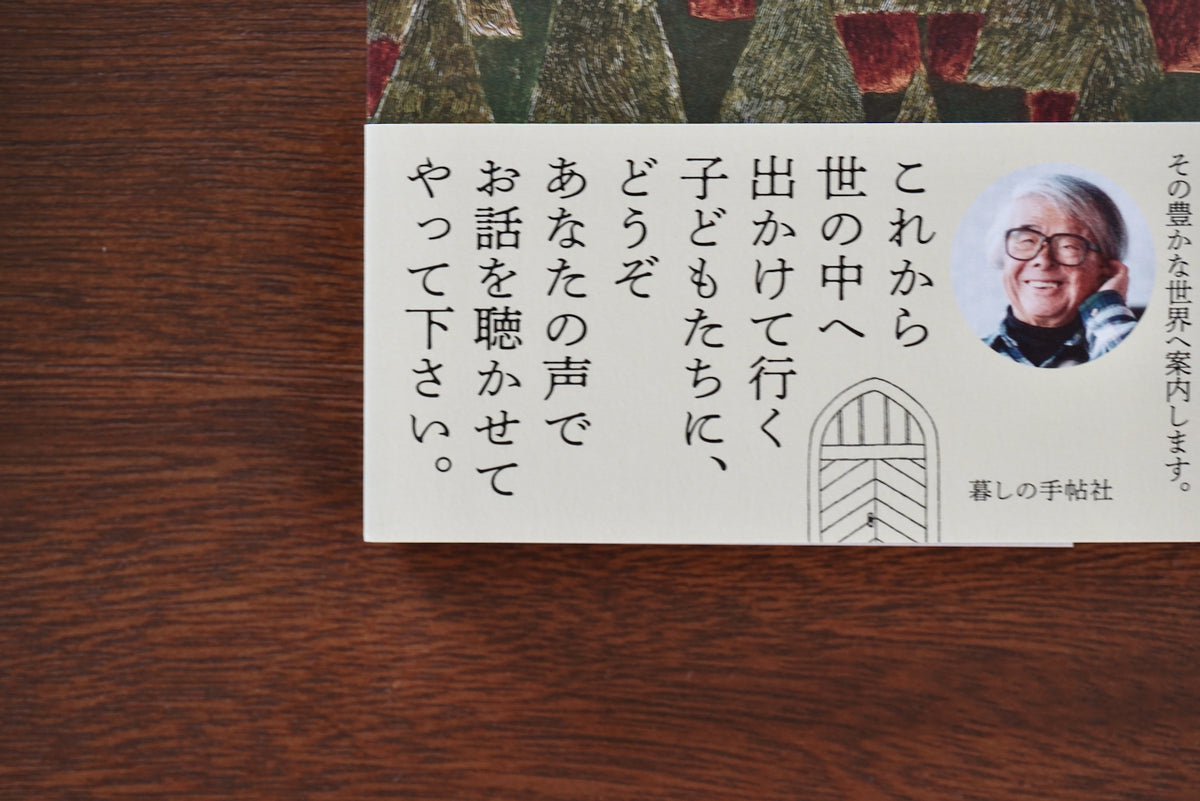 その豊かな世界へ案内します。
暮しの手帖社
これから
世の中へ
出かけて行く
子どもたちに、
どうぞ
あなたの声で
お話を聴かせて
やって下さい。